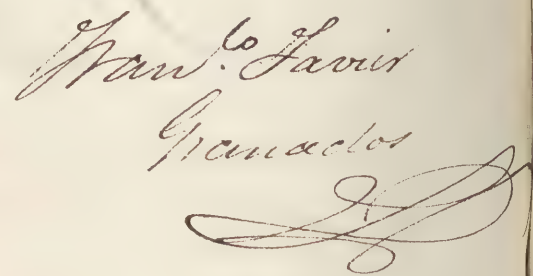 Fran.co Javier
Granados